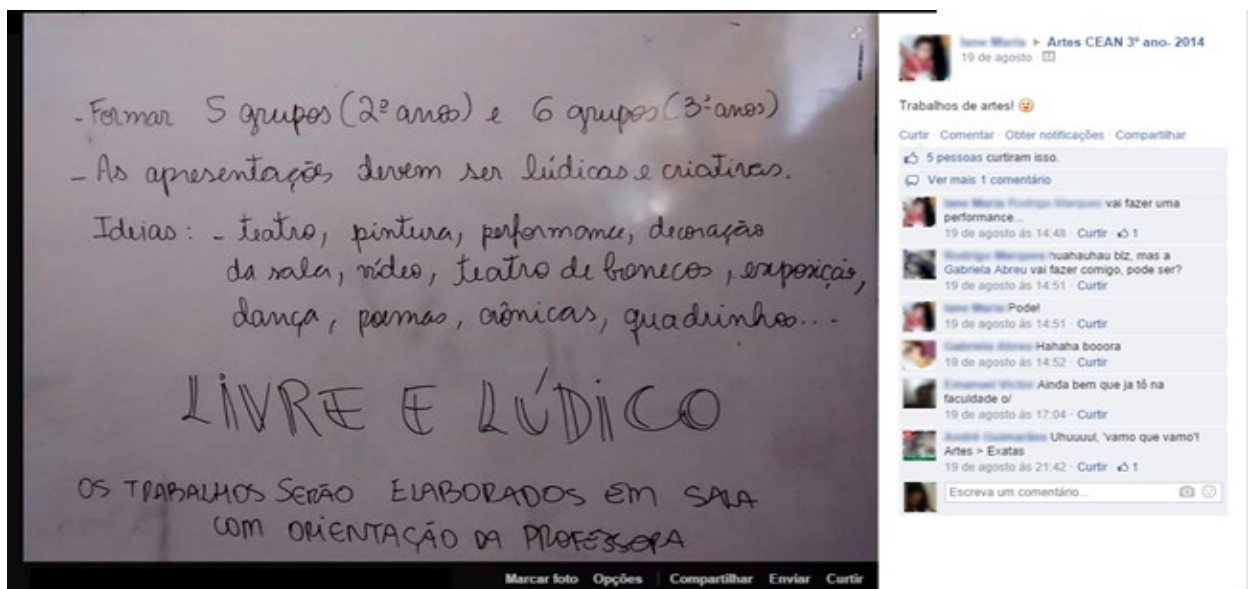 - Formar 5 grupos (2º anos) e 6 grupos (3º anos)
- As apresentações devem ser lúdicas e criativas.
Ideias: - teatro, pintura, performance, decoração
da sala, vídeo, teatro de bonecos, exposição,
dança, poemas, crônicas, quadrinhos...
LIVRE E LÚDICO
OS TRABALHOS SERÃO ELABORADOS EM SALA
COM ORIENTAÇÃO DA PROFESSORA
Marcar foto Opções Compartilhar Enviar Curtir
Artes CEAN 3º ano- 2014
19 de agosto
Trabalhos de artes!
Curtir · Comentar · Obter notificações · Compartilhar
5 pessoas curtiram isso.
Ver mais 1 comentário
vai fazer uma
performance...
19 de agosto às 14:48 · Curtir · 1
huahauhau blz, mas a
Gabriela Abreu vai fazer comigo, pode ser?
19 de agosto às 14:51 · Curtir
Pode!
19 de agosto às 14:51 · Curtir
Hahaha booora
19 de agosto às 14:52 · Curtir
Ainda bem que ja tô na
faculdade o/
19 de agosto às 17:04 · Curtir
Uhuuuul, 'vamo que vamo'!
Artes > Exatas
19 de agosto às 21:42 · Curtir · 1
Escreva um comentário...